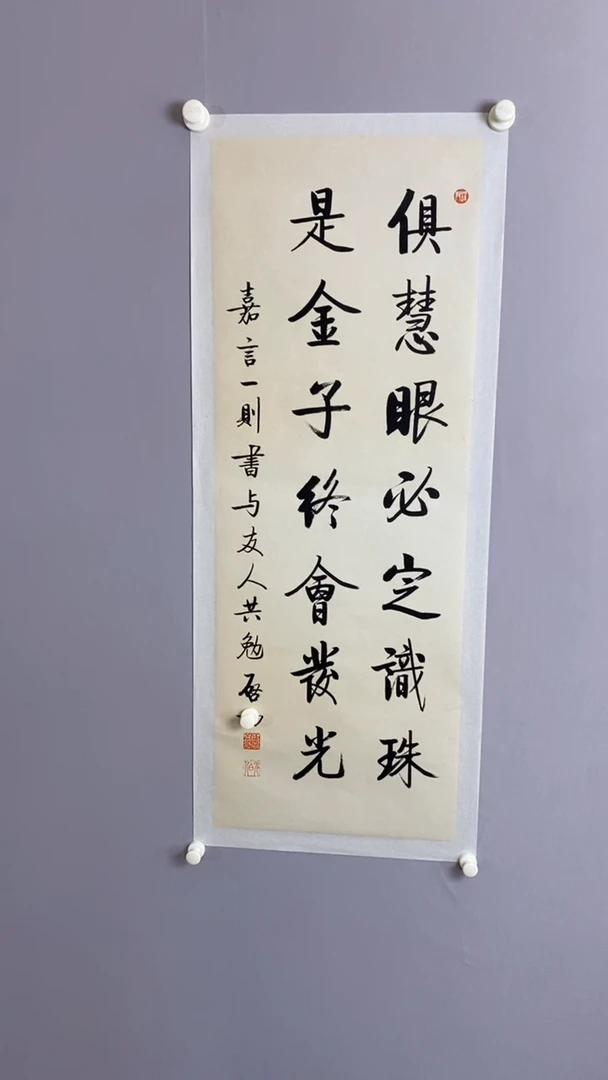 俱慧眼必定識珠
是金子終會發光
嘉言一則書与友人共勉 啓